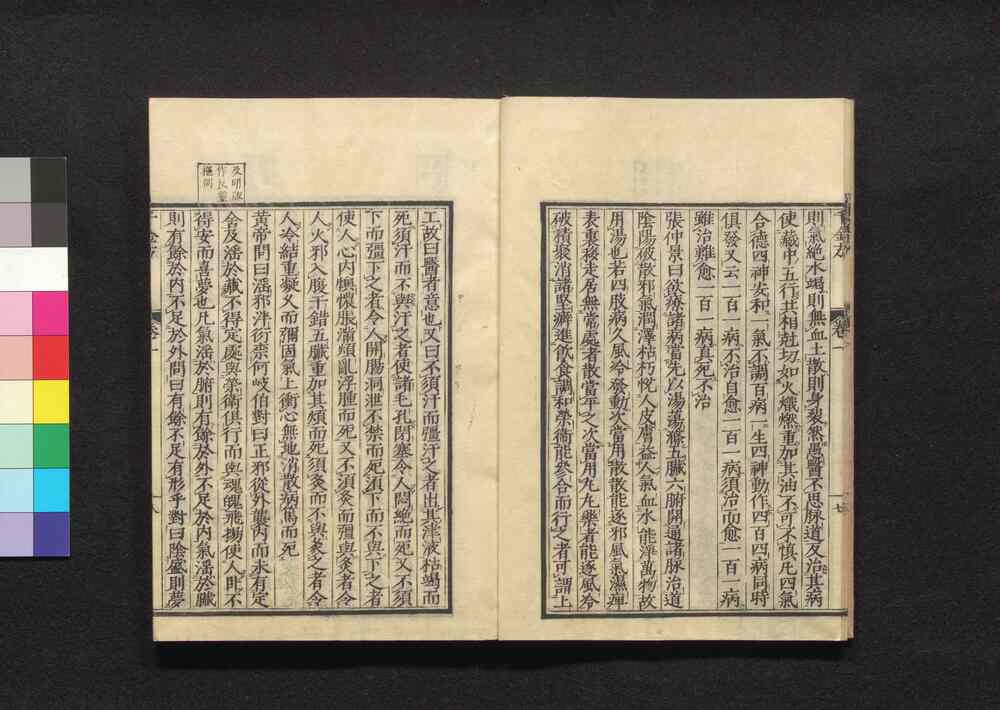 則氣絕水竭則無血土散則身裂然愚醫不思脉道反治其病
使藏中五行共相尅切如火熾燃重加其油不可不慎凡四氣
合德四神安和一氣不調百病一生四神動作四百四病同時
俱發又云一百一病不治自愈一百一病須治而愈一百一病
雖治難愈一百一病真死不治
張仲景曰欲療諸病當先以湯蕩滌五臟六腑開通諸脉治道
陰陽破散邪氣潤澤枯朽悅人皮膚益人氣血水能淨萬物故
用湯也若四肢病久風冷發動次當用散散能逐邪風氣濕痹
表裏移走居無常處者散當平之次當用丸丸藥者能逐風冷
破積聚消諸堅癖進飲食調和榮衞能參合而行之者可謂上
卷一
七
工故曰醫者意也又曰不須汗而彊汗之者出其津液枯竭而
死須汗而不與汗之者使諸毛孔閉塞令人悶絕而死又不須
下而彊下之者令人開腸洞泄不禁而死須下而不與下之者
使人心內懊憹脹滿煩亂浮腫而死又不須灸而彊與灸者令
人火邪入腹干錯五臟重加其煩而死須灸而不與灸之者令
人冷結重凝久而彌固氣上衝心無地消散病篤而死
黃帝問曰淫邪泮衍柰何岐伯對曰正邪從外襲內而未有定
舍及淫於藏不得定處與榮衞俱行而與魂魄飛揚使人臥不
得安而喜夢也凡氣淫於腑則有餘於外不足於內氣淫於臟
則有餘於內不足於外問曰有餘不足有形乎對曰陰盛則夢
卷一
八
及明版
作反靈
樞同